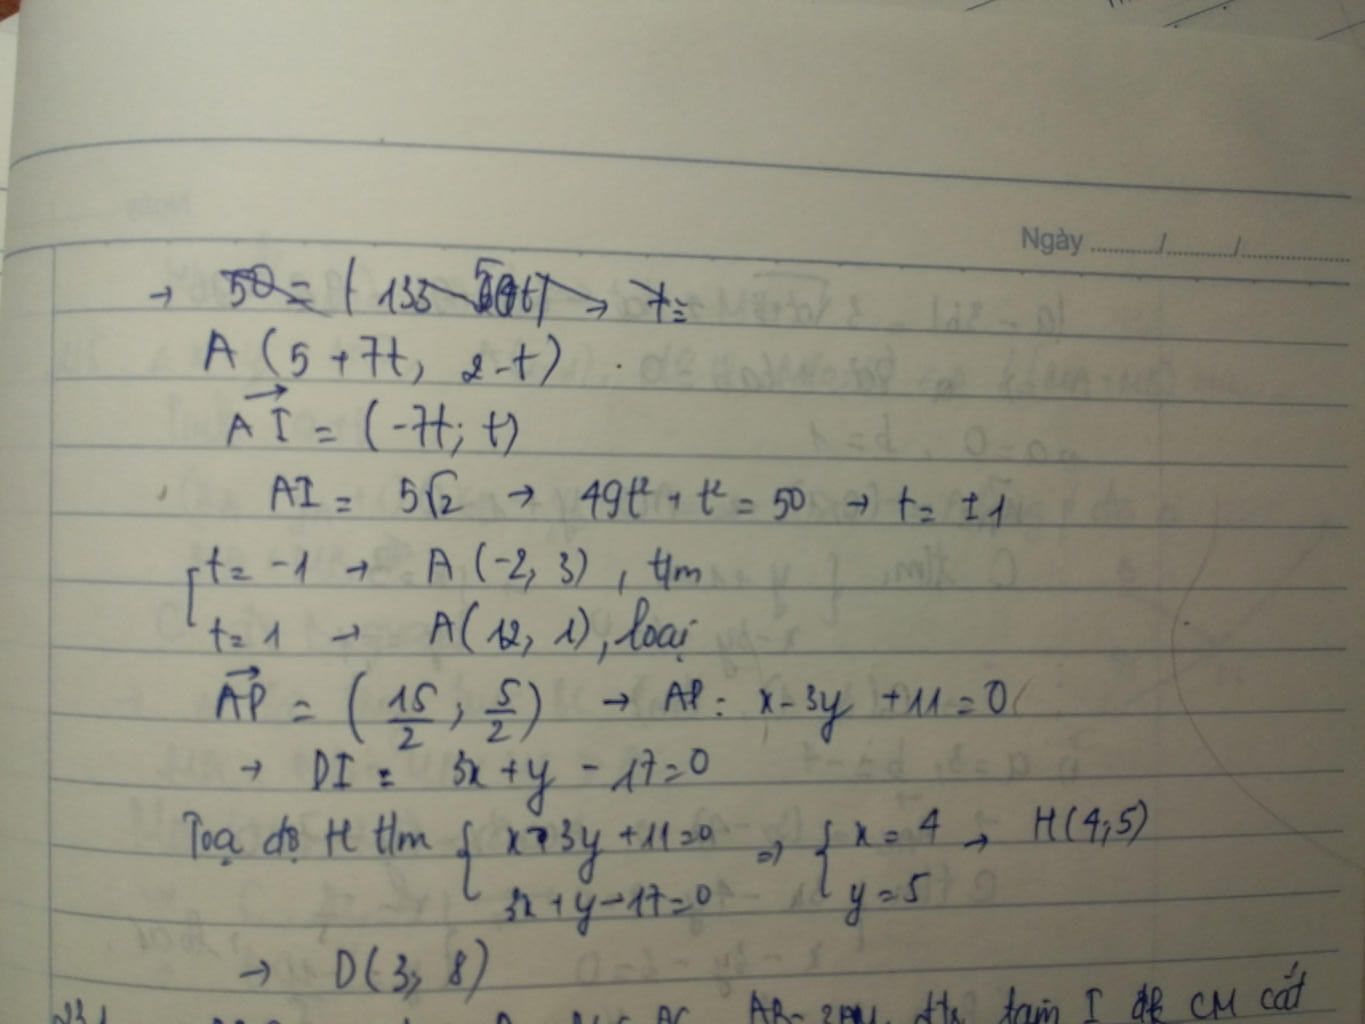 Ngày ......../......../........
→ 50 = | 133 - 50t| → t =
A (5 + 7t, 2 - t) .
AI→ = (-7t; t)
AI = 5√2 → 49t² + t² = 50 → t = ±1
[ t = -1 → A (-2, 3) , t/m
t = 1 → A (12, 1) , loại
AP→ = ( 15/2 ; 5/2 ) → AP : x - 3y + 11 = 0
→ DI : 3x + y - 17 = 0
Toạ độ H t/m { x - 3y + 11 = 0 ⇒ { x = 4 → H (4; 5)
3x + y - 17 = 0 y = 5
→ D (3, 8)
tâm I đt CM cắt